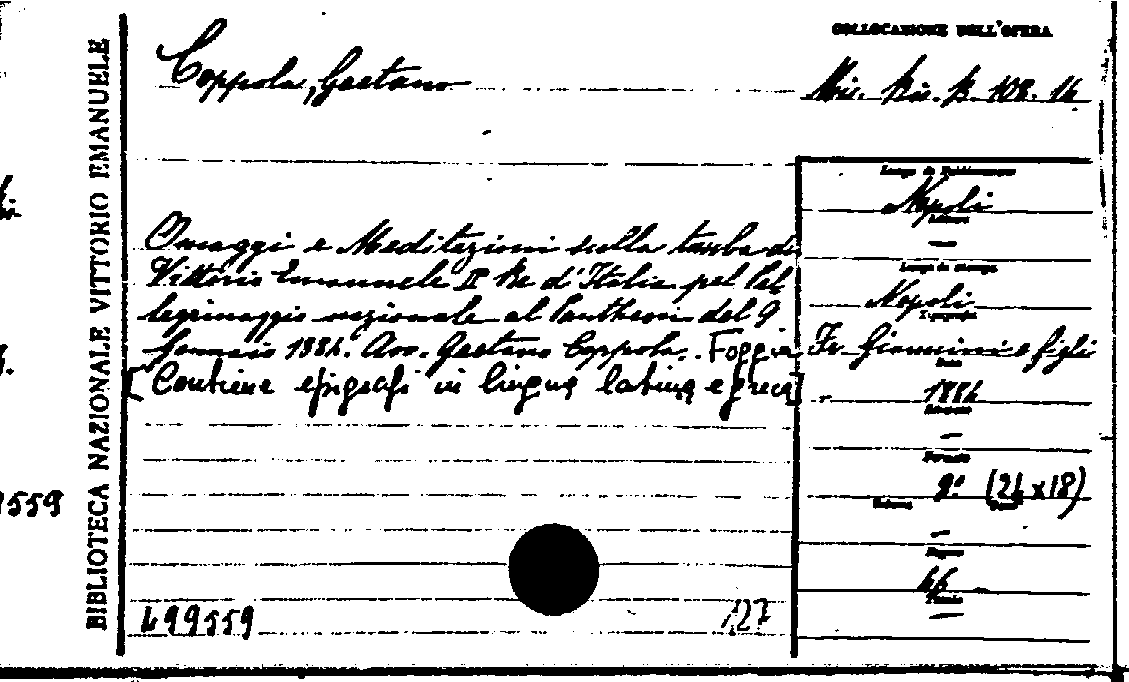 BIBLIOTECA NAZIONALE VITTORIO EMANUELE
COLLOCAZIONE DELL'OPERA
Coppola, Gaetano
Mis. Ris. B. 108. 14
Luogo di Pubblicazione
Napoli
Omaggi e Meditazioni sulla tomba di
Vittorio Emanuele II Re d'Italia pel Pel
legrinaggio nazionale al Pantheon del 9
Gennaio 1884. Avv. Gaetano Coppola. Foggia
[Contiene epigrafi in lingua latina e greca]
Editore
—
Luogo di stampa
Napoli
Tipografia
Fr. Giannini e figli
Data
1884
—
Formato
8° (24 x 18)
Volumi
—
Pagine
46
—
499559
127
9559